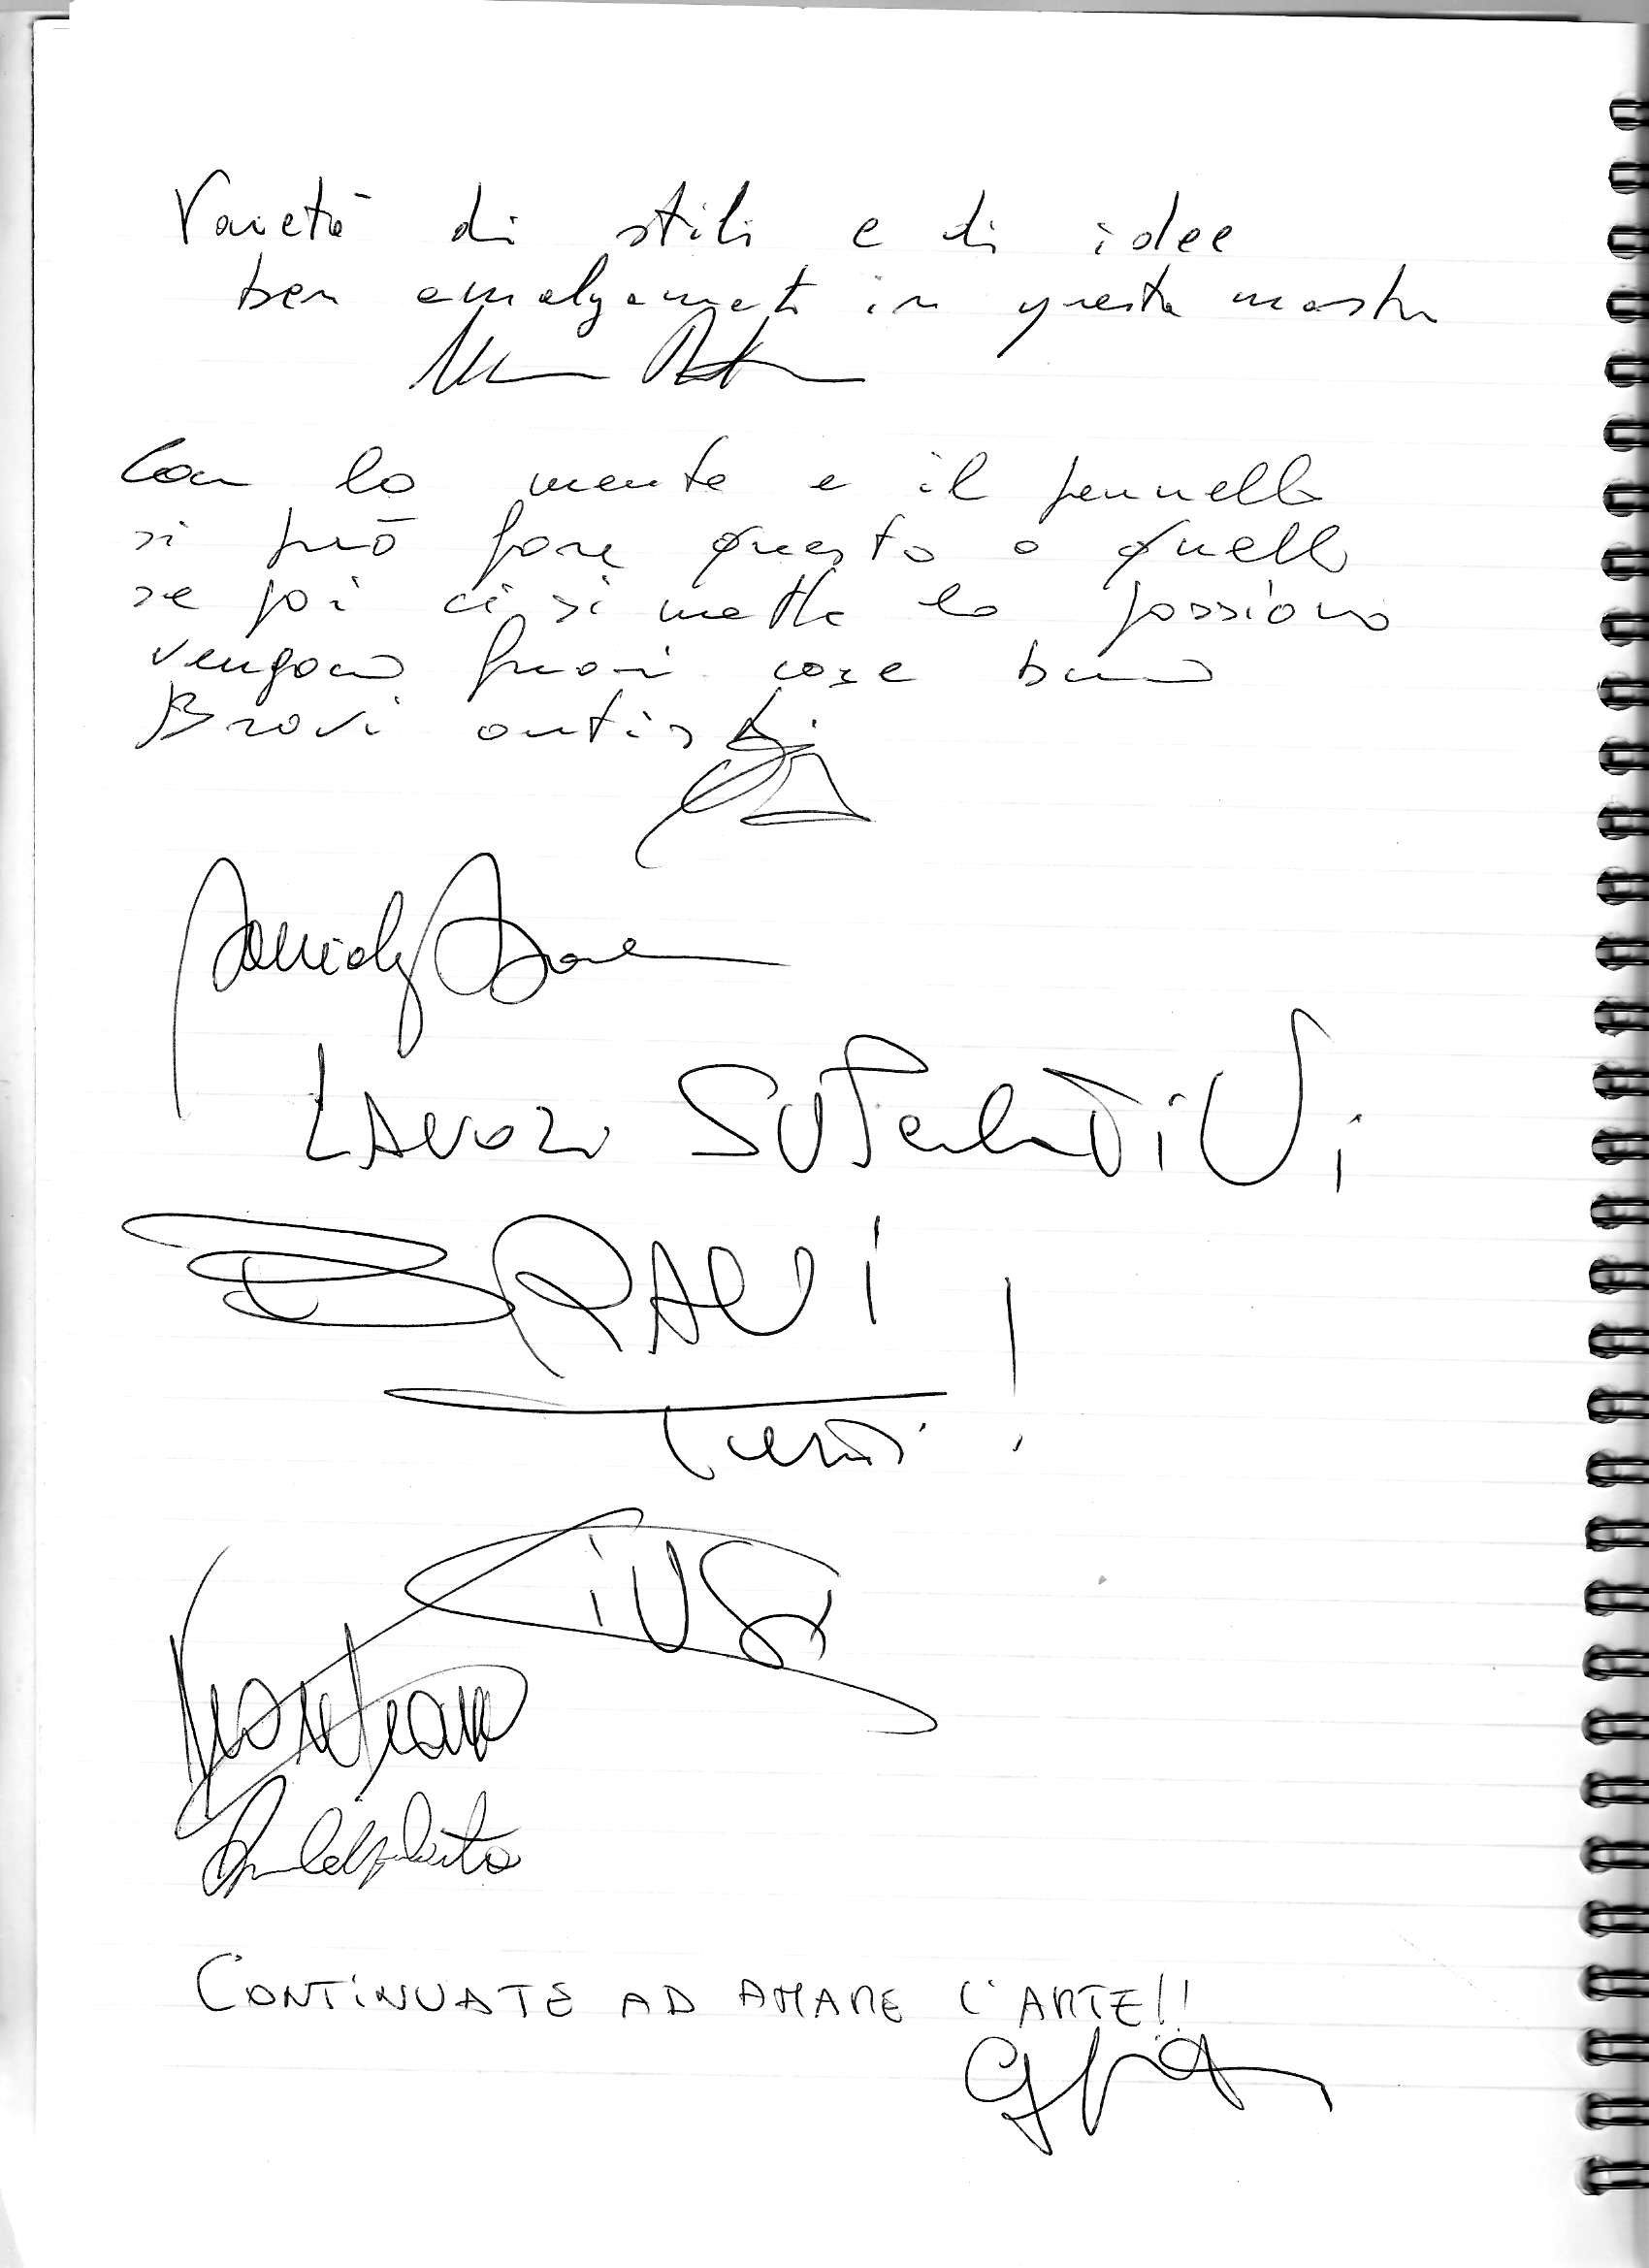 Varietà di stili e di idee
ben amalgamati in questa mostra
Con la mente e il pennello
si può fare questo o quello
se poi ci si mette la passione
vengono fuori cose buone
Bravi artisti
LAVORI SUPerlATiVi
BRAVi !
Tutti
GiUSY
CONTiNUATE AD AMARE L'ARTE!!